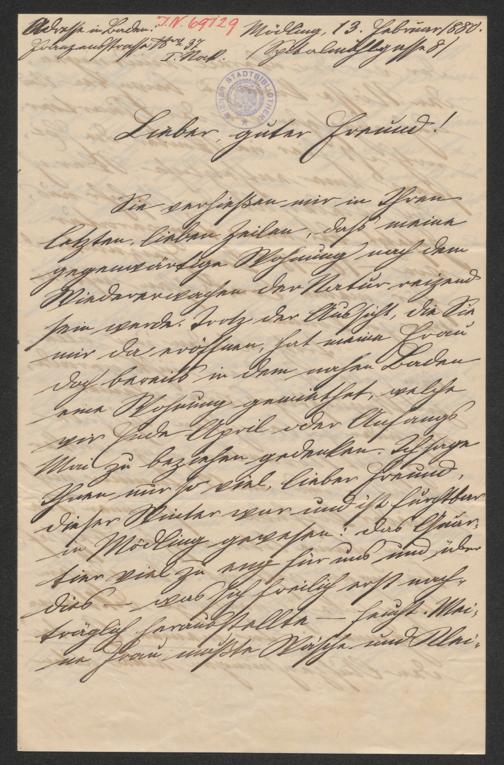 Adresse in Baden:
J.N. 69729
Mödling, 13. Februar 1880.
Franzensstrasse № 37
Spitalmühlgasse 8/
I. Stock.
WIENER STADTBIBLIOTHEK
Lieber, guter Freund!
Sie verhießen mir in Ihren
letzten, lieben Zeilen, daß meine
gegenwärtige Wohnung nach dem
Wiedererwachen der Natur reizend
sein werde. Trotz der Aussicht, die Sie
mir da eröffnen, hat meine Frau
doch bereits in dem nahen Baden
eine Wohnung gemiethet, welche
wir Ende April oder Anfangs
Mai zu beziehen gedenken. Ich sage
Ihnen nur so viel, lieber Freund,
dieser Winter war und ist furchtbar
in Mödling gewesen! Das Quar-
tier viel zu eng für uns und über
dies – was sich freilich erst nach-
träglich herausstellte – feucht. Mei-
ne Frau mußte Wäsche und Klei-